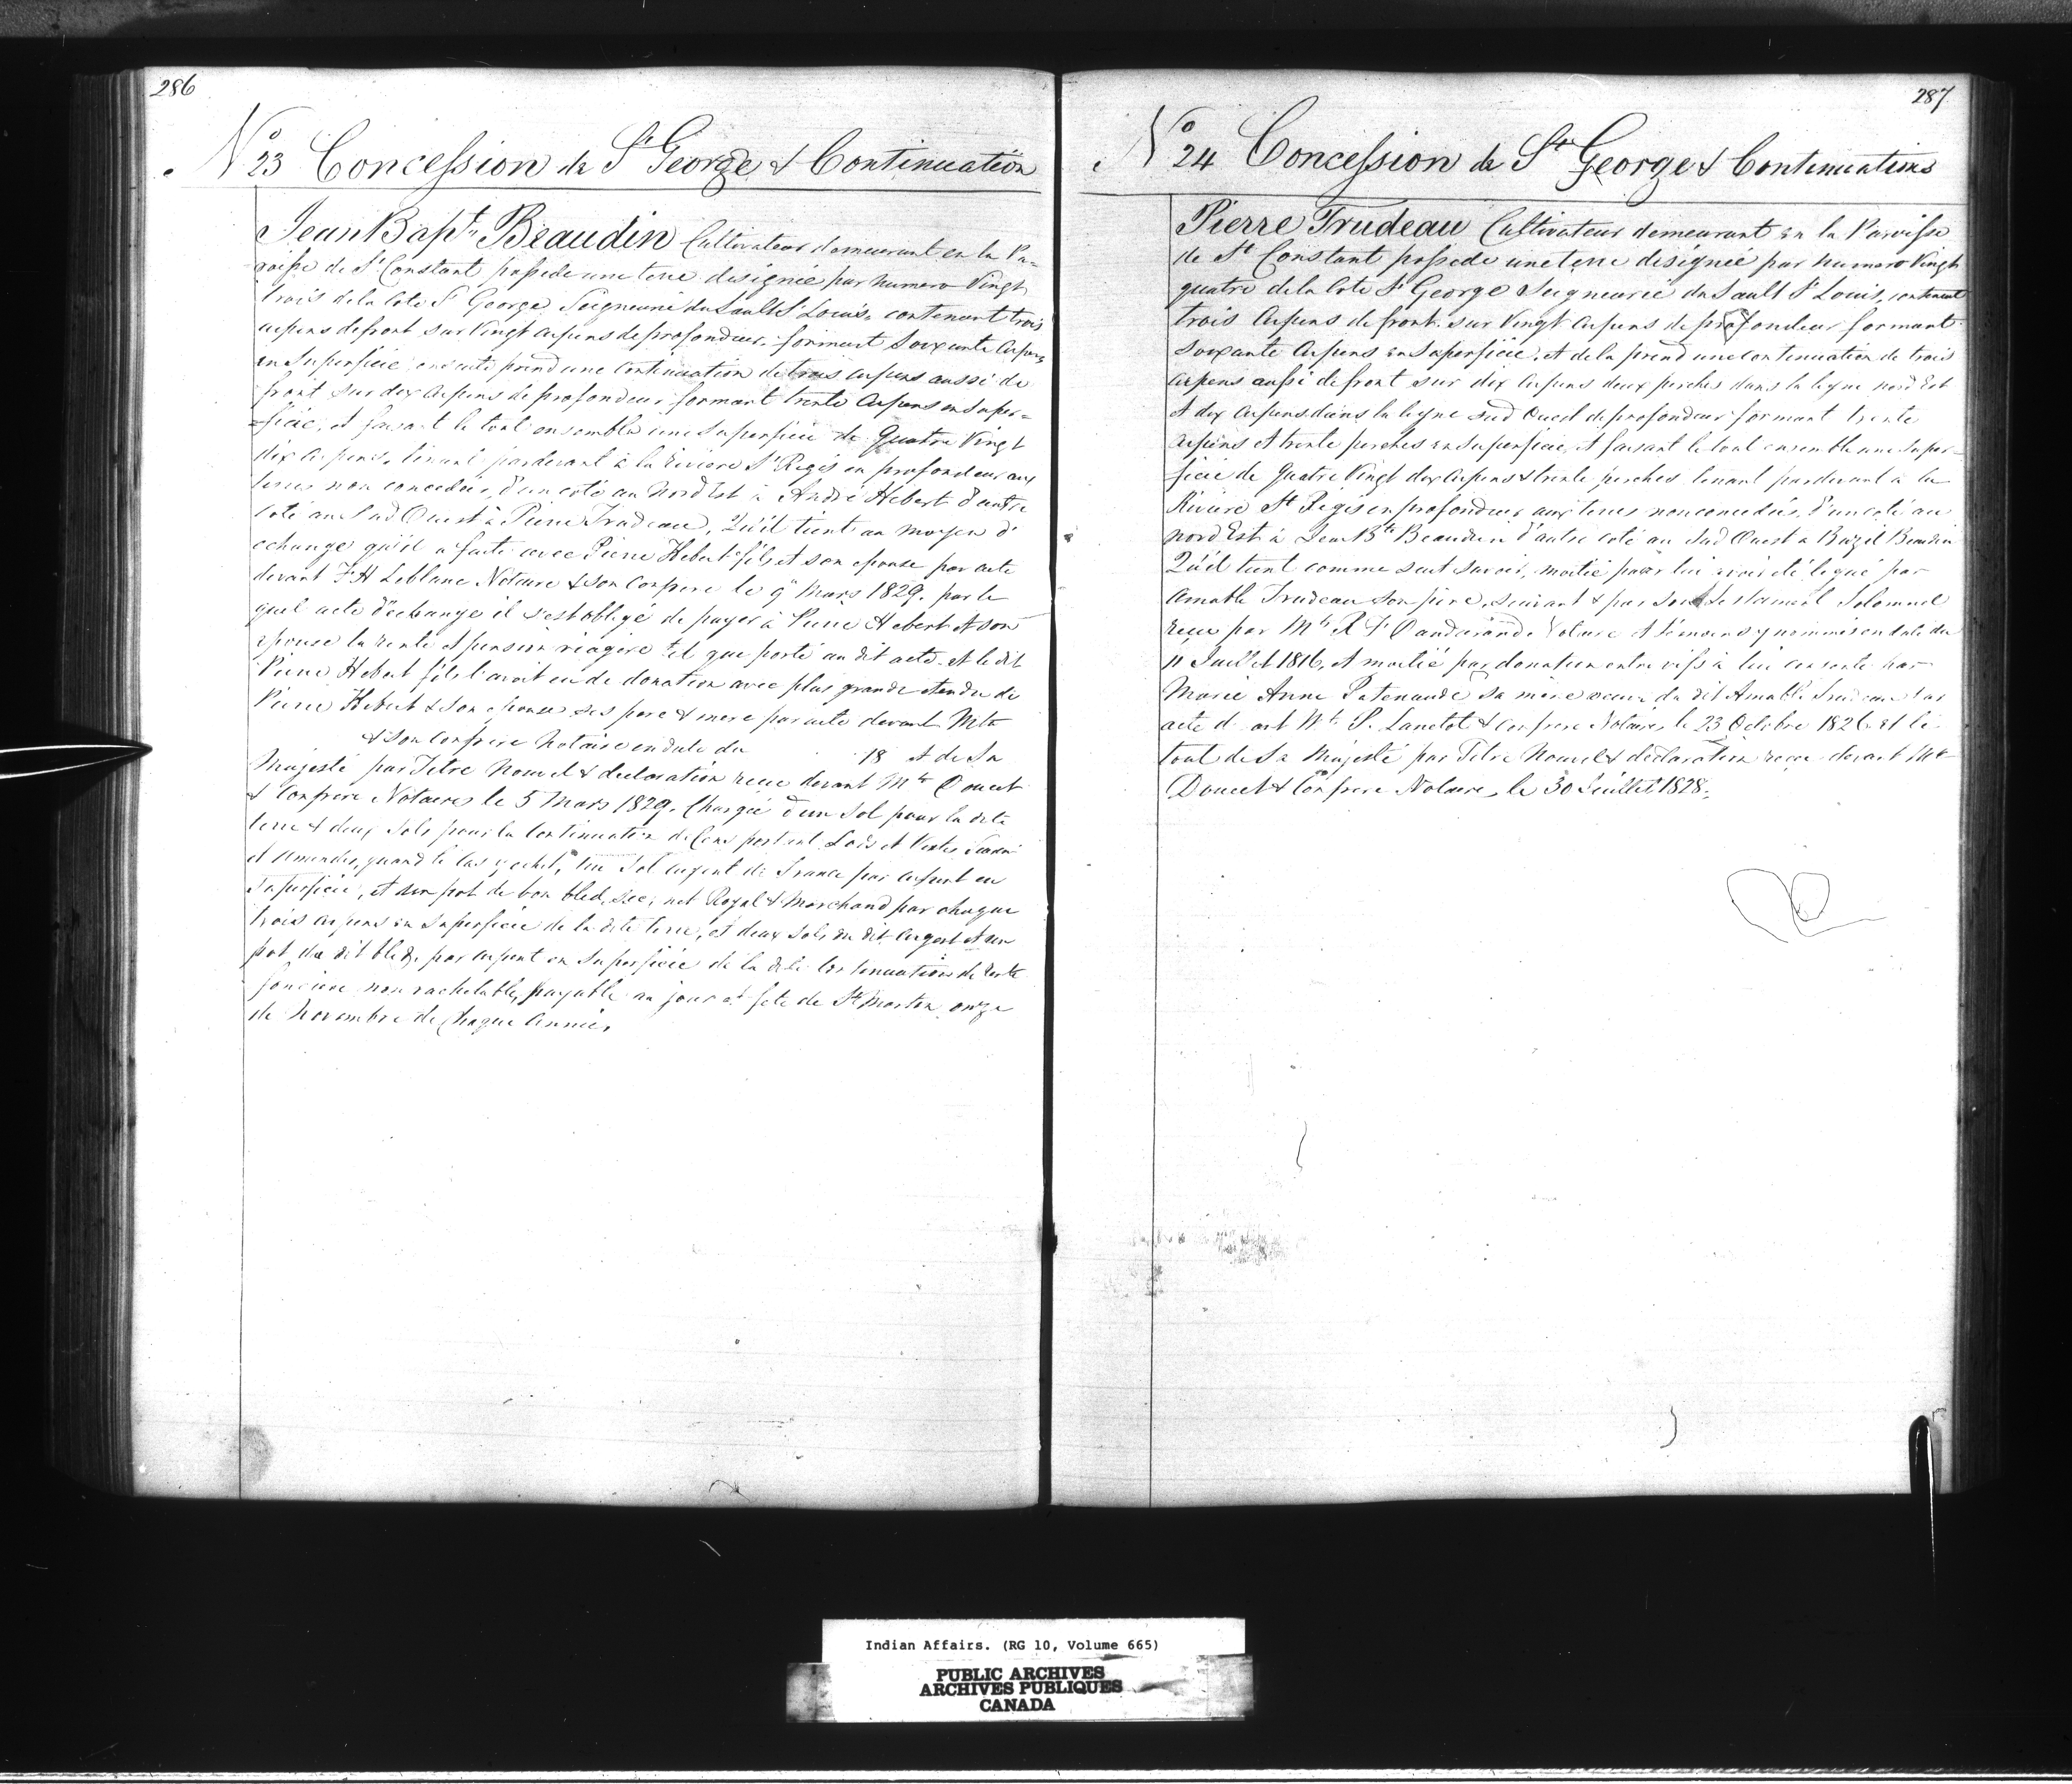 286
No 23 Concession de St George & Continuation
Jean Bapt. Beaudin Cultivateur demeurant en la Pa=
roisse de St Constant possede une terre designée par numero Vingt
trois de la Cote St George Seigneurie du Sault St Louis, contenant trois
arpens de front sur Vingt arpens de profondeur, formant Soixante Arpens
en Superficie, ensuite prend une Continuation de trois arpens aussi de
front sur dix arpens de profondeur formant trente Arpens en Super=
=ficie, et faisant le tout ensemble une Superficie de Quatre Vingt
dix arpens, tenant pardevant à la Riviere St Regis en profondeur aux
terres non concedées, d'un coté au Nord Est à André Hebert d'autre
coté au Sud Ouest à Pierre Trudeau, Qu'il tient au moyen d'
echange qu'il a faite avec Pierre Hebert fils et son epouse par acte
devant F H Leblanc Notaire & son Confrere le 9 Mars 1829. par le
quel acte d'echange il s'est obligé de payer à Pierre Hebert & son
epouse la rente et pension viagere tel que porté au dit acte et le dit
Pierre Hebert fils l'avoit eu de donation avec plus grande etendue de
Pierre Hebert & son epouse ses pere & mere par acte devant Mtre
& son confrere Notaire en date du 18 et de Sa
Majesté par Titre Nouvel & declaration recue devant Mtre Doucet
& Confrere Notaires le 5 Mars 1829. Chargée d'un Sol pour la dite
terre & deux Sols pour la Continuation de Cens portant Lods et Ventes Saisine
et Amendes, quand le Cas y echet, un Sol argent de France par arpent en
Superficie, et un pot de bon bled, sec, net Royal & Marchand par chaque
trois arpens en Superficie de la dite terre, et deux Sols du dit argent et un
pot du dit bled, par arpent en Superficie de la dite Continuation de Rente
fonciere non rachetable, payable au jour et fete de St Martin onze
de Novembre de Chaque Année.
287
No 24 Concession de St George & Continuations
Pierre Trudeau Cultivateur demeurant en la Paroisse
de St Constant possede une terre désignée par numero Vingt
quatre de la Cote St George Seigneurie du Sault St Louis, contenant
trois Arpens de front sur Vingt Arpens de profondeur formant
Soixante Arpens en Superficie, et de la prend une continuation de trois
arpens aussi de front sur dix Arpens deux perches dans la ligne nord Est
et dix Arpens dans la ligne Sud Ouest de profondeur formant trente
Arpens et trente perches en Superficie, et faisant le tout ensemble une Super=
ficie de Quatre Vingt dix Arpens & trente perches tenant pardevant à la
Riviere St Regis en profondeur aux terres non concedées, d'un coté au
nord Est à Jean Bte Beaudin d'autre coté au Sud Ouest à Bazil Beaudin
Qu'il tient comme suit savoir, moitié pour lui avoir été legué par
Amable Trudeau son pere, suivant & par son Testament Solomnel
recu par Mtre R F Dandurand Notaire et témoins y nommés en date du
11 Juillet 1816, et moitié par donation entre vifs à lui consentie par
Marie Anne Patenaude sa mere veuve du dit Amable Trudeau par
acte devant Mtre P. Lanctot & Confrere Notaires le 23 Octobre 1826 et le
tout de Sa Majesté par Titre Nouvel & declaration recue devant Mtre
Doucet & Confrere Notaires, le 30 Juillet 1828.
Indian Affairs. (RG 10, Volume 665)
PUBLIC ARCHIVES
ARCHIVES PUBLIQUES
CANADA